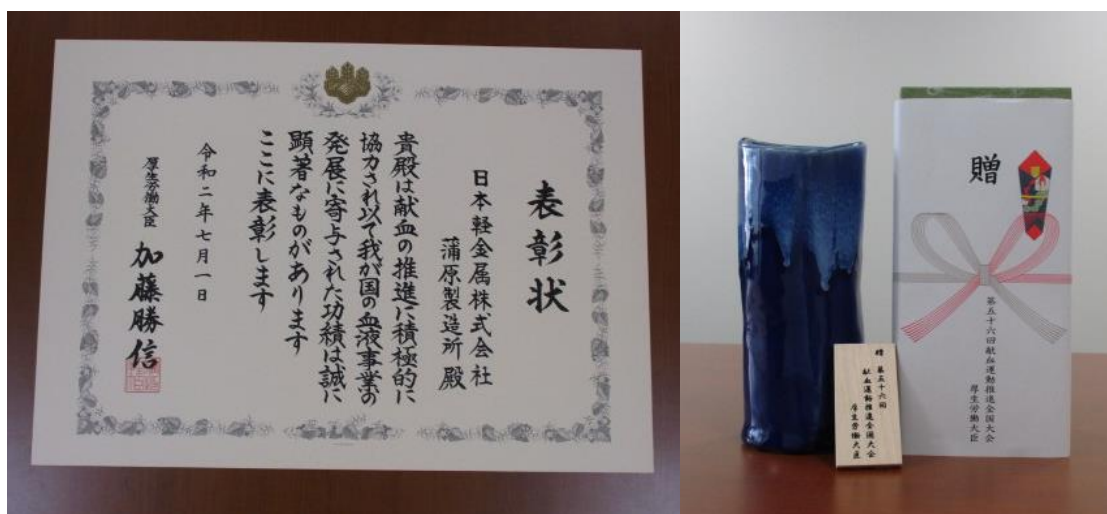 表彰状
日本軽金属株式会社
蒲原製造所 殿
貴殿は献血の推進に積極的に
協力され以て我が国の血液事業の
発展に寄与された功績は誠に
顕著なものがあります
ここに表彰します
令和二年七月一日
厚生労働大臣 加藤勝信
贈
第五十六回
献血運動推進全国大会
厚生労働大臣
贈
第五十六回献血運動推進全国大会
厚生労働大臣